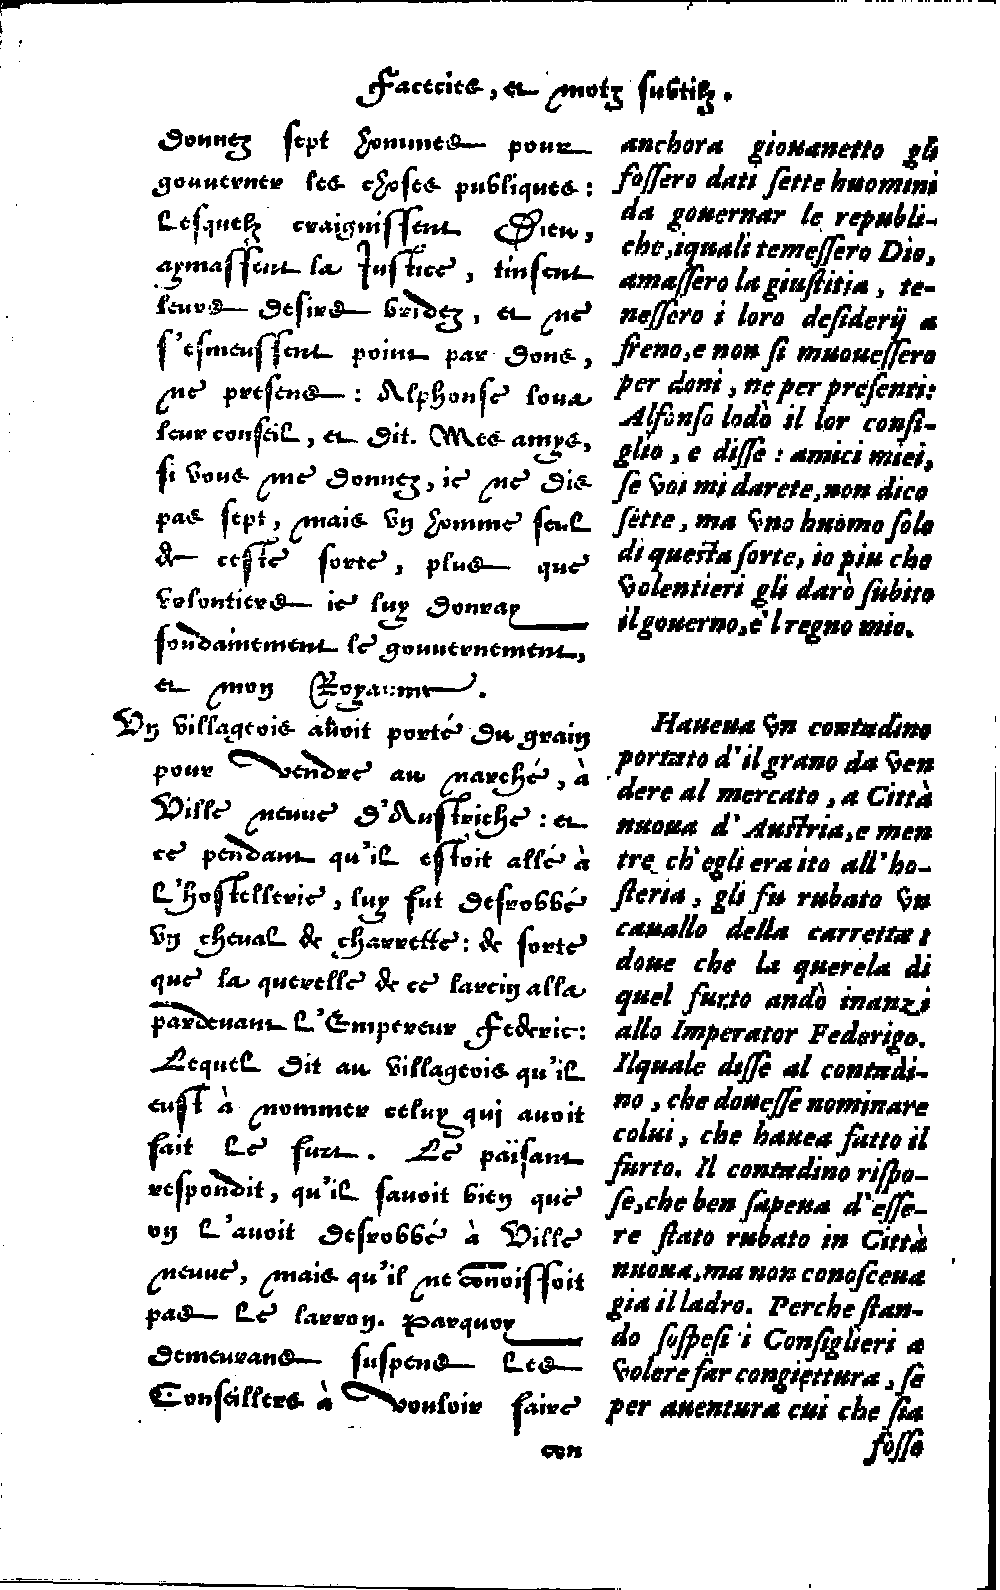 Facecies, et motz subtilz.
donnez sept hommes pour
gouverner les choses publiques:
lesquelz craignissent Dieu,
aymassent la Justice, tinsent
leurs desirs bridez, et ne
s'esmeussent point par dons,
ne presens: Alphonse loua
leur conseil, et dit. Mes amys,
si vous me donnez, ie ne dis
pas sept, mais vn homme seul
de ceste sorte, plus que
volontiers ie luy donray
soudainement le gouvernement,
et mon Royaume.
Vn villageois avoit porté du grain
pour vendre au marché, à
Ville neuve d'Austriche: et
ce pendant qu'il estoit allé à
l'hostellerie, luy fut desrobbé
vn cheval de charrette: de sorte
que la querelle de ce larcin alla
pardevant l'Empereur Federic:
Lequel dit au villageois qu'il
eust à nommer celuy qui avoit
fait le furt. Le païsant
respondit, qu'il savoit bien que
on l'avoit desrobbé à Ville
neuve, mais qu'il ne connoissoit
pas le larron. Parquoy
demeurans suspens les
Conseillers à vouloir faire
con
anchora giouanetto gli
fossero dati sette huomini
da gouernar le republi-
che, iquali temessero Dio,
amassero la giustitia, te-
nessero i loro desiderij a
freno, e non si mouessero
per doni, ne per presenti:
Alfonso lodò il lor consi-
glio, e disse: amici miei,
se voi mi darete, non dico
sette, ma vno huomo solo
di questa sorte, io piu che
volentieri gli darò subito
il gouerno, e'l regno mio.
Haueua vn contadino
portato d'il grano da ven
dere al mercato, a Città
nuoua d'Austria, e men
tre ch'egli era ito all'ho-
steria, gli fu rubato vn
cauallo della carretta:
doue che la querela di
quel furto andò inanzi
allo Imperator Federigo.
Ilquale disse al contadi-
no, che douesse nominare
colui, che hauea fatto il
furto. Il contadino rispo-
se, che ben sapeua d'esse-
re stato rubato in Città
nuoua, ma non conosceua
gia il ladro. Perche stan-
do sospesi i Consiglieri a
volere far congiettura, se
per auentura cui che sia
fosse